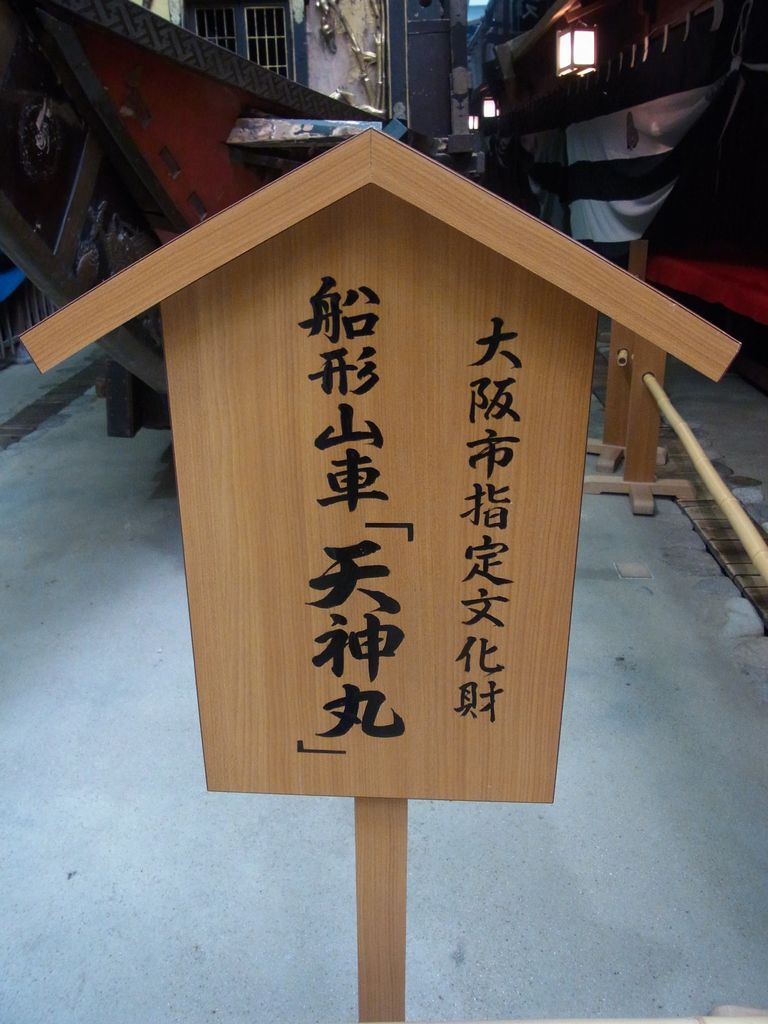 大阪市指定文化財
船形山車「天神丸」